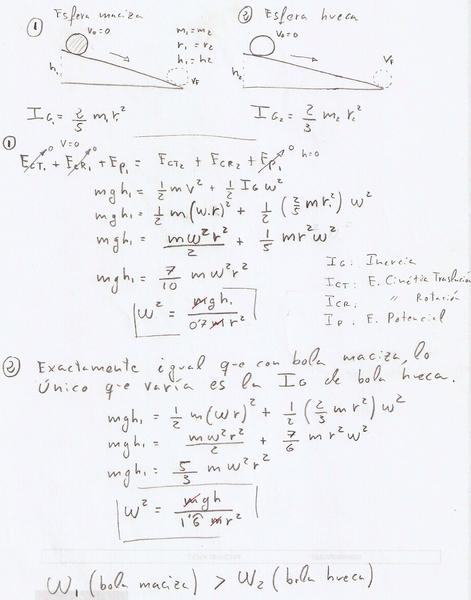 ① Esfera maciza
V₀=0
m₁=m₂
r₁=r₂
h₁=h₂
h₁
V_F
② Esfera hueca
V₀=0
h₂
V_F
I_G₁ = 2/5 m₁r₁²
I_G₂ = 2/3 m₂r₂²
①
V=0
E_CT₁ ↗0 + E_CR₁ ↗0 + E_P₁ = E_CT₂ + E_CR₂ + E_P₁ ↗0 h=0
mgh₁ = 1/2 mv² + 1/2 I_G ω²
mgh₁ = 1/2 m(w.r)² + 1/2 (2/5 mr₁²) ω²
mgh₁ = mω²r²/2 + 1/5 mr²ω²
mgh₁ = 7/10 mω²r²
ω² = mgh₁ / 0'7 mr²
I_G: Inercia
I_CT: E. Cinética Traslución
I_CR: " Rotación
I_P: E. Potencial
② Exactamente igual que con bola maciza, lo
único que varía es la I_G de bola hueca.
mgh₁ = 1/2 m(Wr)² + 1/2 (2/3 mr²) ω²
mgh₁ = mω²r²/2 + 7/6 mr²ω²
mgh₁ = 5/3 mω²r²
ω² = mgh / 1'6 mr²
W₁ (bola maciza) > W₂ (bola hueca)